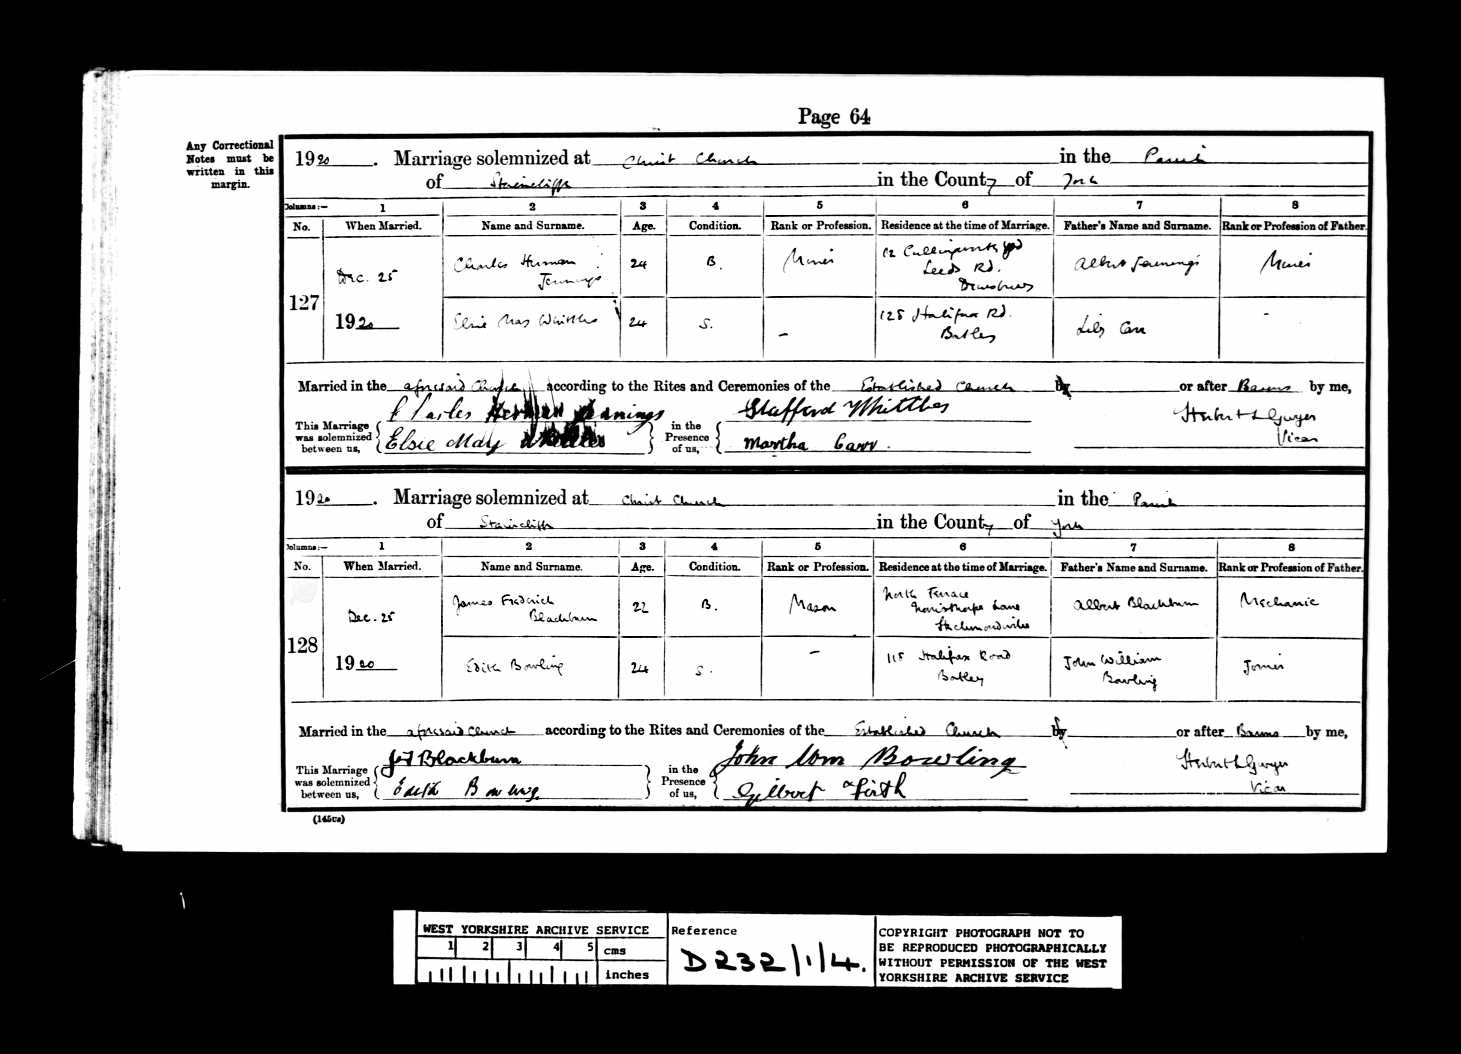 Page 64
Any Correctional
Notes must be
written in this
margin.
1920. Marriage solemnized at Christ Church in the Parish
of Staincliffe in the County of York
Columns:— 1 2 3 4 5 6 7 8
No. When Married. Name and Surname. Age. Condition. Rank or Profession. Residence at the time of Marriage. Father's Name and Surname. Rank or Profession of Father.
127 Dec. 25 Charles Herman Jennings 24 B. Miner 12 Cullingworth Yd Leeds Rd. Dewsbury Albert Jennings Miner
1920 Elsie May Whittles 24 S. — 128 Halifax Rd. Batley Lily Carr -
Married in the aforesaid Church according to the Rites and Ceremonies of the Established Church by or after Banns by me,
This Marriage was solemnized between us, Charles Herman Jennings in the Presence of us, Stafford Whittles Herbert L Gwyer
Elsie May Whittles Martha Carr. Vicar
1920. Marriage solemnized at Christ Church in the Parish
of Staincliffe in the County of York
Columns:— 1 2 3 4 5 6 7 8
No. When Married. Name and Surname. Age. Condition. Rank or Profession. Residence at the time of Marriage. Father's Name and Surname. Rank or Profession of Father.
128 Dec. 25 James Frederick Blackburn 22 B. Mason North Terrace Norristhorpe Lane Albert Blackburn Mechanic
1920 Edith Bowling 24 S. — 118 Halifax Road Batley John William Bowling Joiner
Married in the aforesaid Church according to the Rites and Ceremonies of the Established Church by or after Banns by me,
This Marriage was solemnized between us, J F Blackburn in the Presence of us, John Wm Bowling Herbert L Gwyer
Edith Bowling Gilbert Firth Vicar
WEST YORKSHIRE ARCHIVE SERVICE
1 2 3 4 5 cms
inches
Reference
D232/1/4.
COPYRIGHT PHOTOGRAPH NOT TO
BE REPRODUCED PHOTOGRAPHICALLY
WITHOUT PERMISSION OF THE WEST
YORKSHIRE ARCHIVE SERVICE